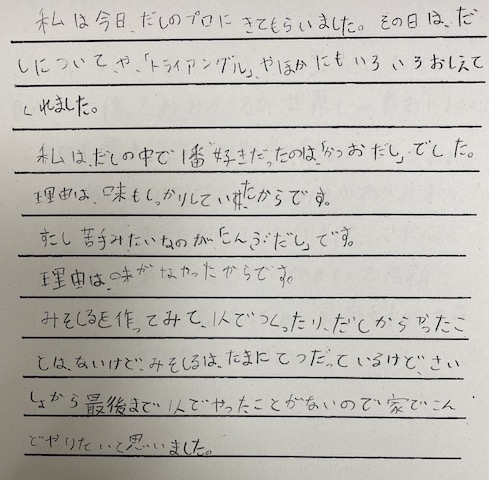 私は今日、だしのプロにきてもらいました。その日は、だ
しについて、や、「トライアングル」、やほかにもいろいろおしえて
くれました。
私は、だしの中で1番好きだったのは、「かつおだし」でした。
理由は、味もしっかりしていたからです。
すこし苦手みたいなのが「こんぶだし」です。
理由は、味がなかったからです。
みそしるを作ってみて、1人でつくったり、だしからやったこ
とは、ないけど、みそしるは、たまにてつだっているけど、さい
しょから最後まで1人でやったことがないので家でこん
どやりたいと思いました。